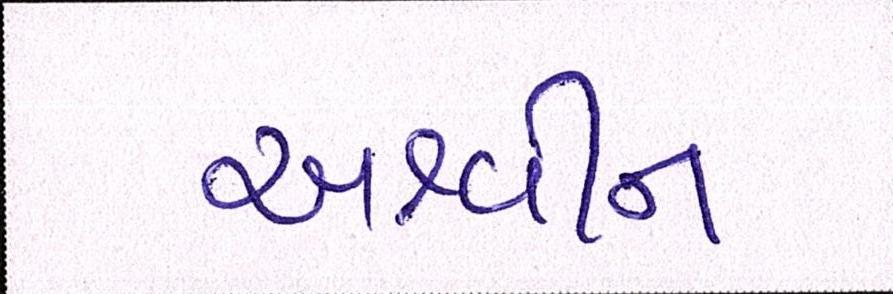 અશ્વીન